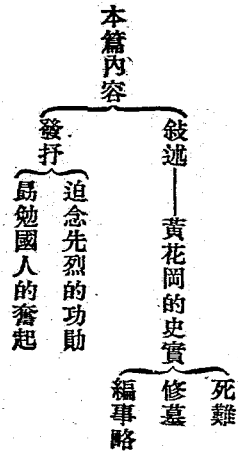 本篇內容
敍述——黃花岡的史實
死難
修墓
編事略
發抒
追念先烈的功勛
勗勉國人的奮起